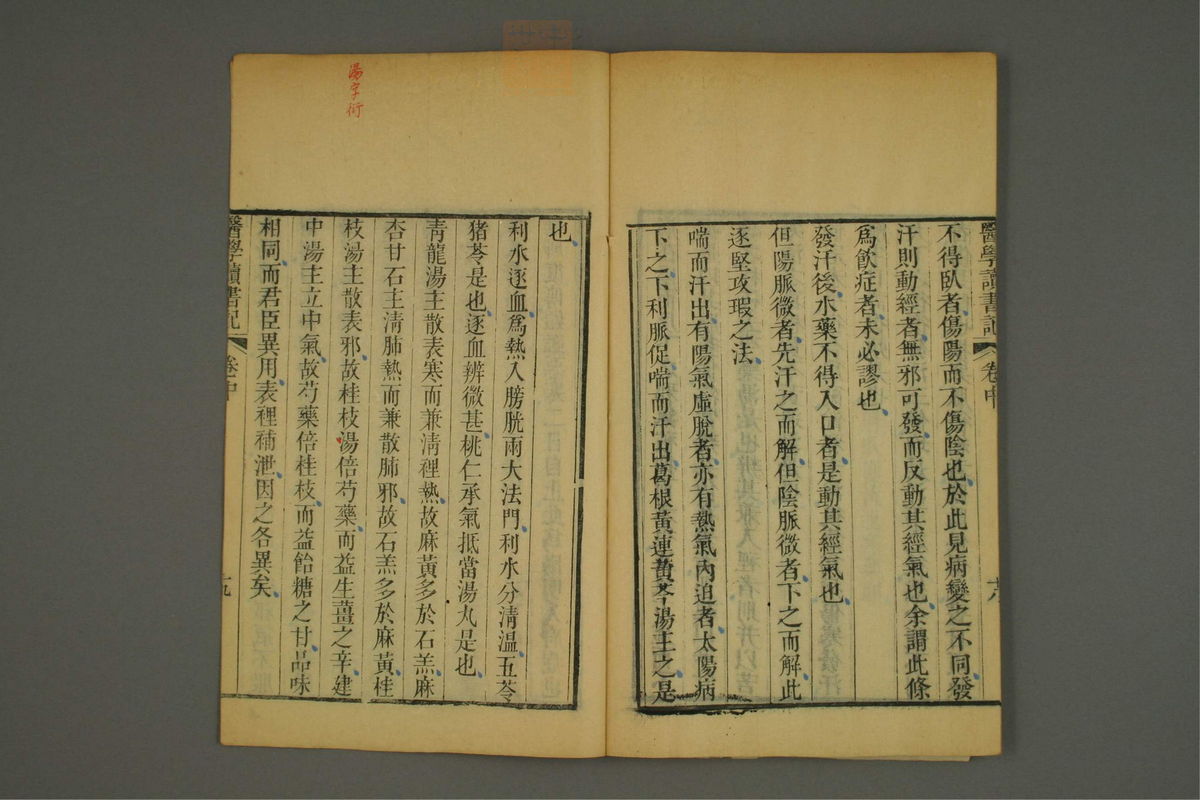 醫學讀書記
卷中
十八
不得臥者傷陽而不傷陰也於此見病變之不同發
汗則動經者無邪可發而反動其經氣也余謂此條
爲飲症者未必謬也
發汗後水藥不得入口者是動其經氣也
但陽脈微者先汗之而解但陰脈微者下之而解此
逐堅攻瑕之法
喘而汗出有陽氣虛脫者亦有熱氣內迫者太陽病
下之下利脈促喘而汗出葛根黃連黃芩湯主之是
也
利水逐血爲熱入膀胱兩大法門利水分清溫五苓
猪苓是也逐血辨微甚桃仁承氣抵當湯丸是也
青龍湯主散表寒而兼淸裡熱故麻黃多於石羔麻
杏甘石主清肺熱而兼散肺邪故石羔多於麻黃桂
枝湯主散表邪故桂枝湯倍芍藥而益生薑之辛建
中湯主立中氣故芍藥倍桂枝而益飴糖之甘品味
相同而君臣異用表裡補泄因之各異矣
湯字衍
醫學讀書記
卷中
十九